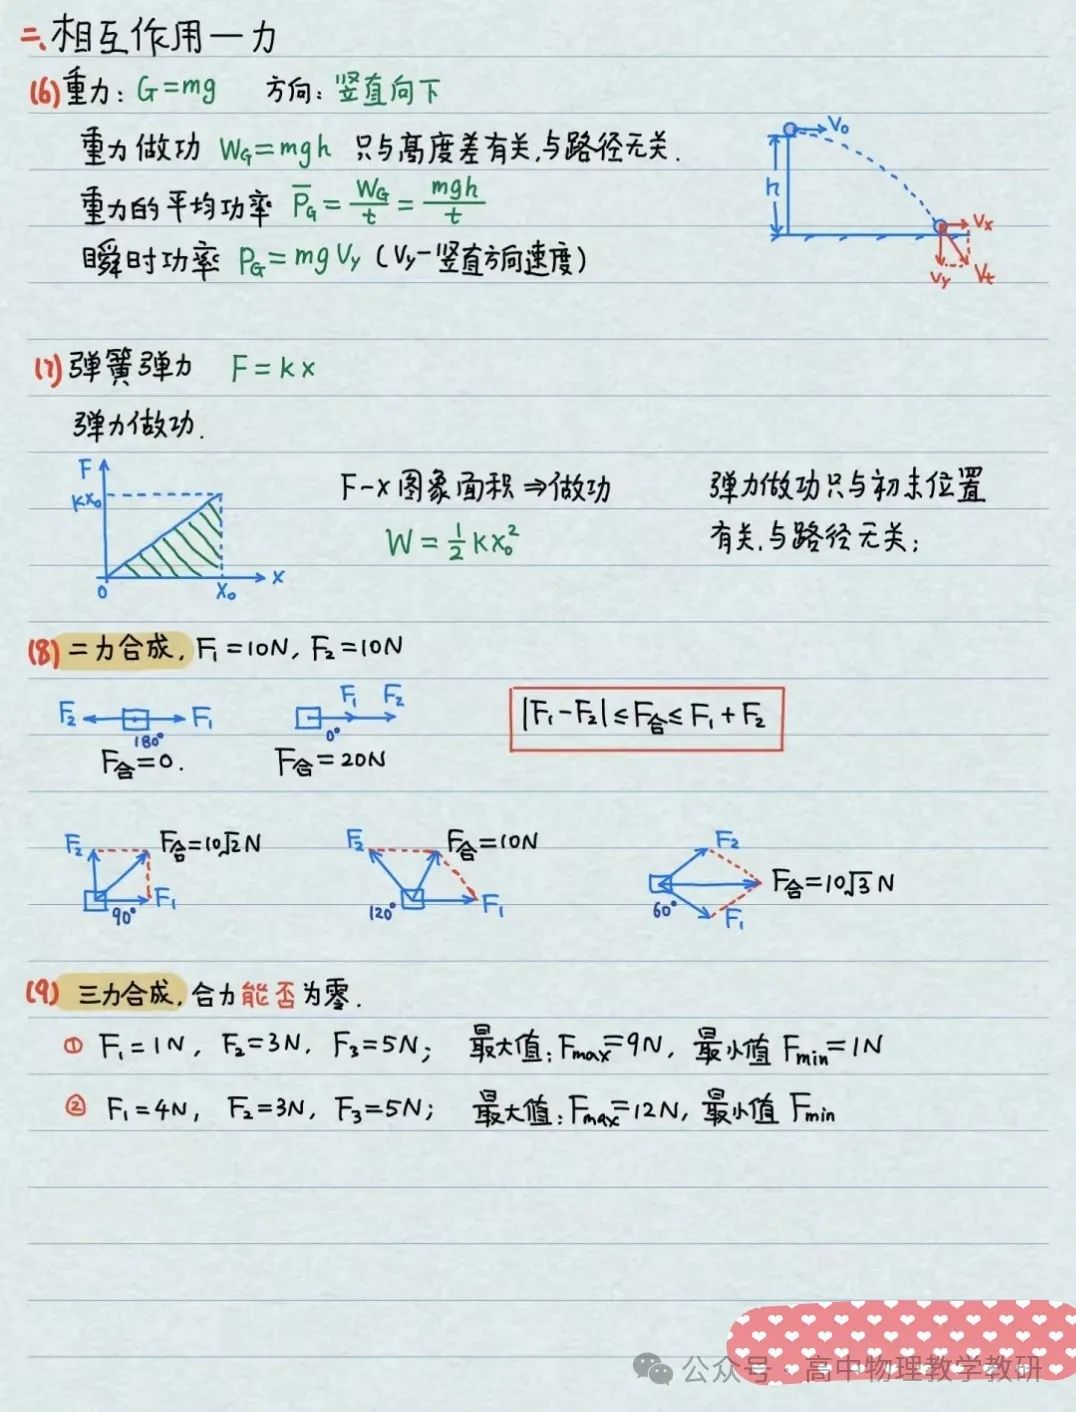 二、相互作用一力
(6)重力: G=mg 方向: 竖直向下
重力做功 W_G=mgh 只与高度差有关,与路径无关.
重力的平均功率 P̅_G = W_G/t = mgh/t
瞬时功率 P_G=mgVy (Vy-竖直方向速度)
V₀
h
Vx
Vy
Vt
(7)弹簧弹力 F=kx
弹力做功.
F
kx₀
0
x₀
x
F-x图象面积⇒做功
W=½kx₀²
弹力做功只与初末位置
有关,与路径无关;
(8)二力合成, F₁=10N, F₂=10N
F₂ F₁
180°
F合=0.
F₁ F₂
0°
F合=20N
|F₁-F₂|≤F合≤F₁+F₂
F₂ F合=10√2N
F₁
90°
F₂ F合=10N
120° F₁
F₂
F合=10√3N
60°
F₁
(9)三力合成,合力能否为零.
① F₁=1N, F₂=3N, F₃=5N; 最大值:Fmax=9N, 最小值Fmin=1N
② F₁=4N, F₂=3N, F₃=5N; 最大值:Fmax=12N, 最小值Fmin
公众号 高中物理教学教研